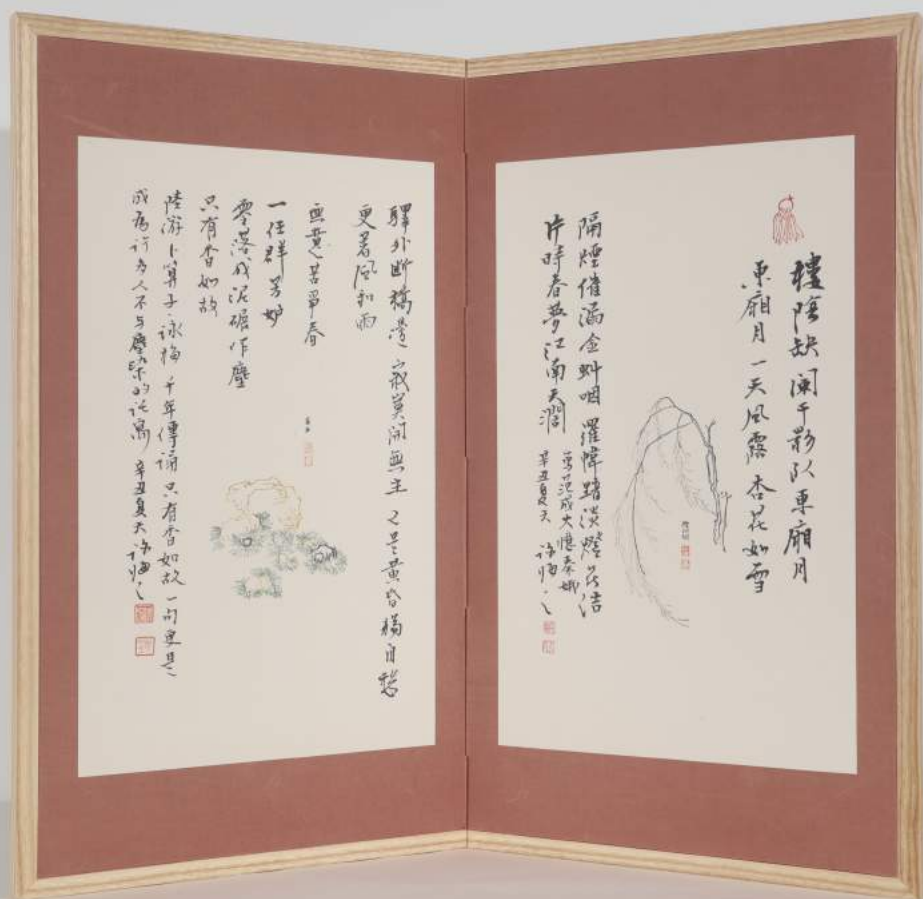 樓陰缺 闌干影臥東廂月
東廂月 一天風露 杏花如雪
隔煙催漏金虯咽 羅幃黯淡燈花結
片時春夢 江南天闊
寫范成大憶秦娥
辛丑夏天 許悔之
驛外斷橋邊 寂寞開無主 已是黃昏獨自愁
更著風和雨
無意苦爭春
一任群芳妒
零落成泥碾作塵
只有香如故
陸游卜算子·詠梅 千年傳誦 只有香如故 一句更是
成為 為人不与塵染的託寓 辛丑夏天 許悔之